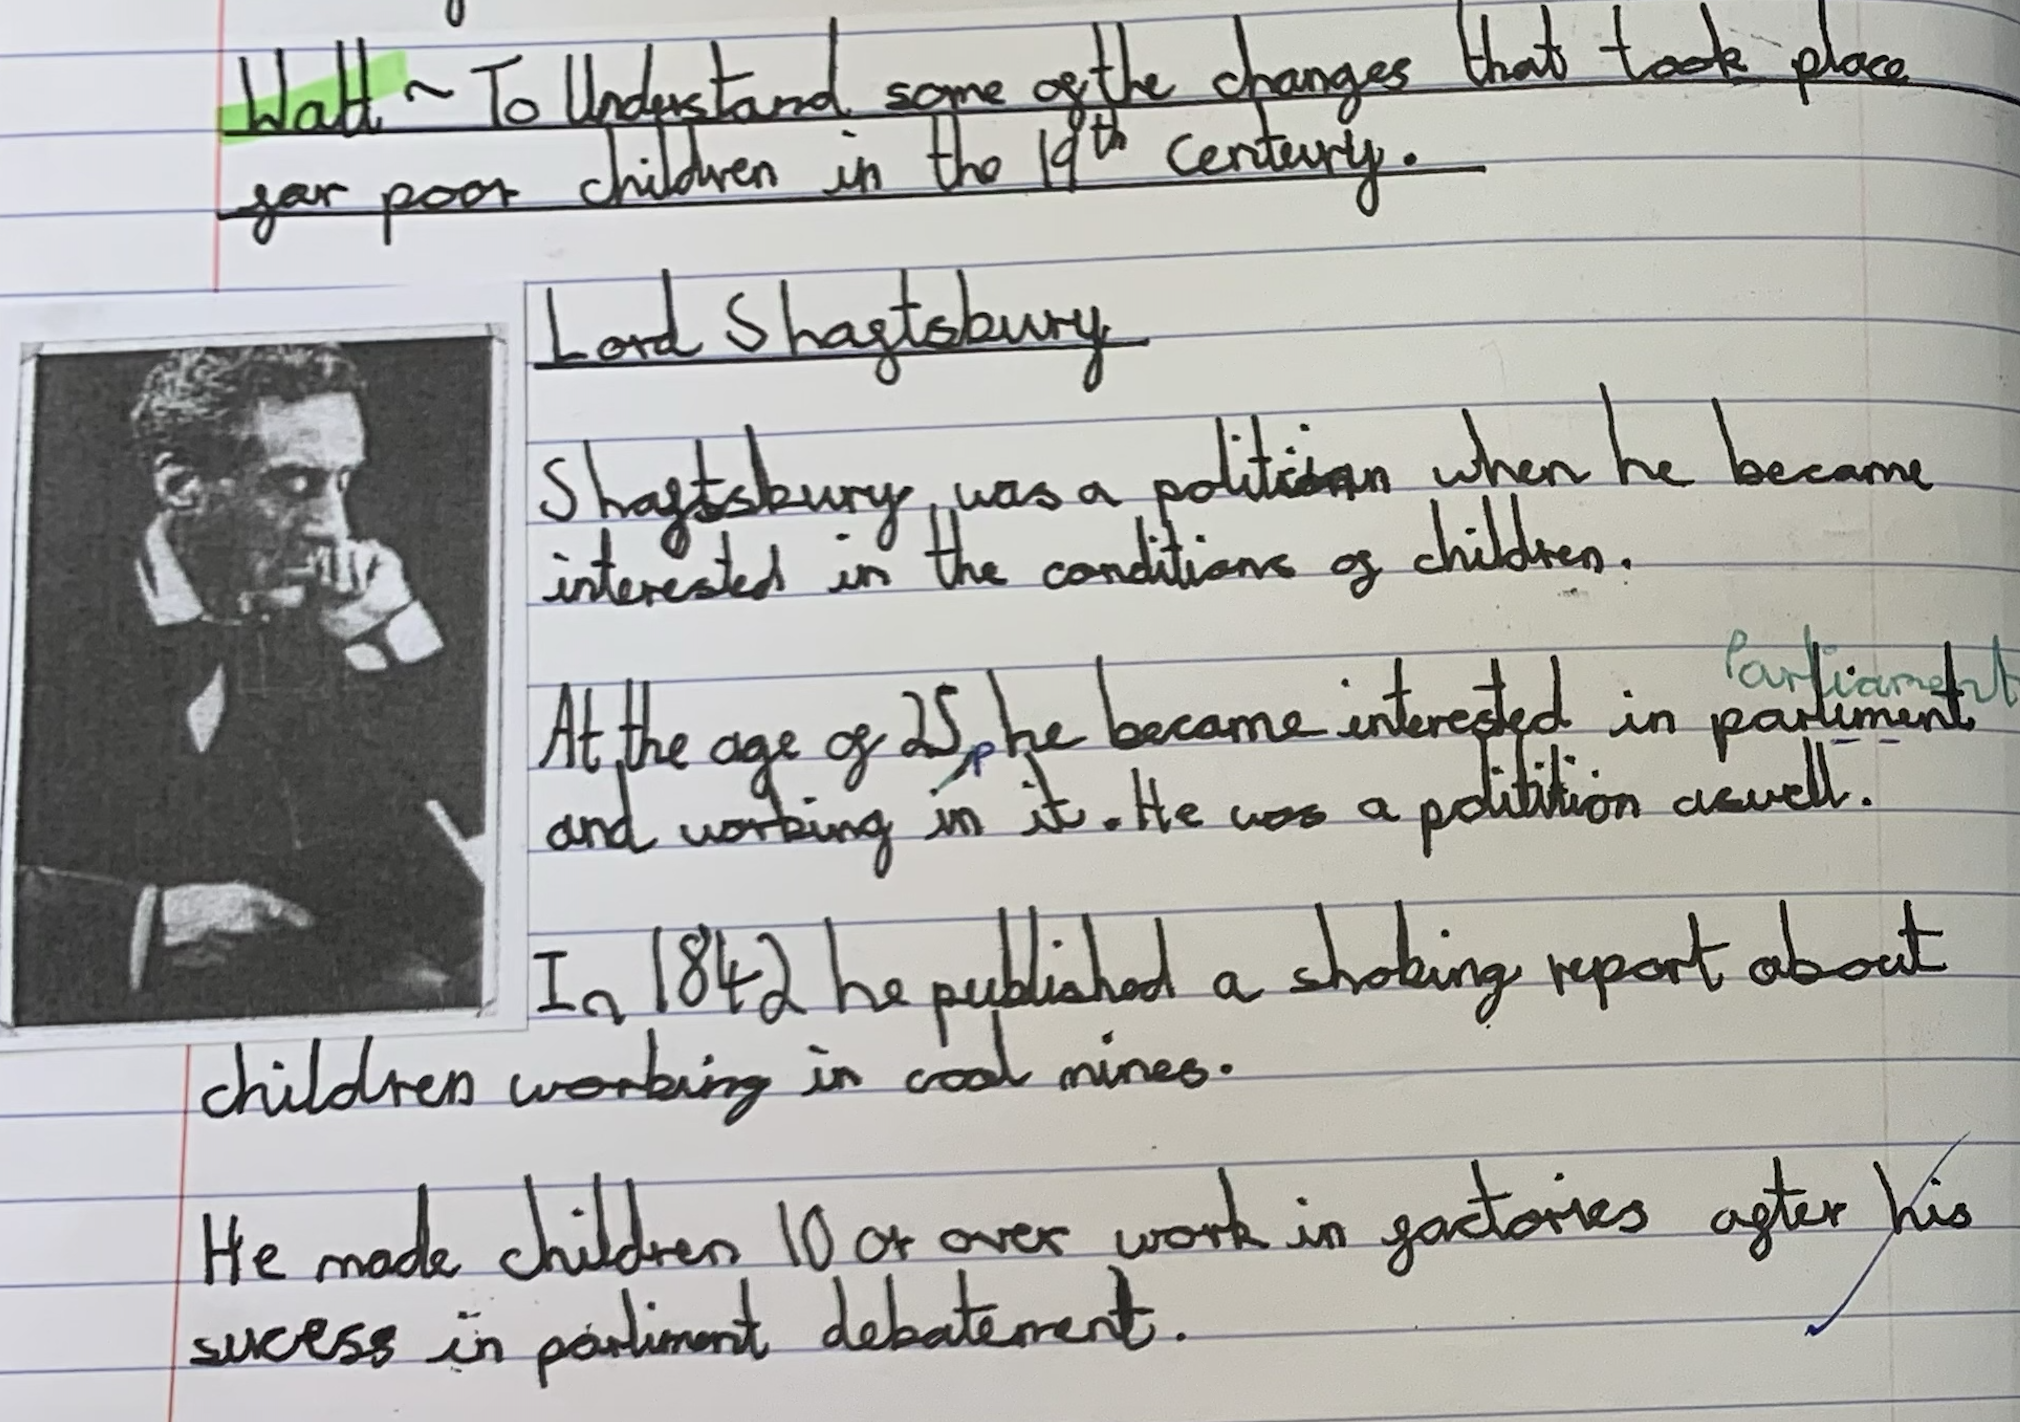 Walt ~ To Understand some of the changes that took place
for poor children in the 19th centeury.
Lord Shaftsbury
Shaftsbury was a politician when he became
interested in the conditions of children.
Parliament
At the age of 25, he became interested in parliment
and working in it. He was a politition aswell.
In 1842 he published a shoking report about
children working in coal mines.
He made children 10 or over work in factories after his
sucess in parliment debatement.